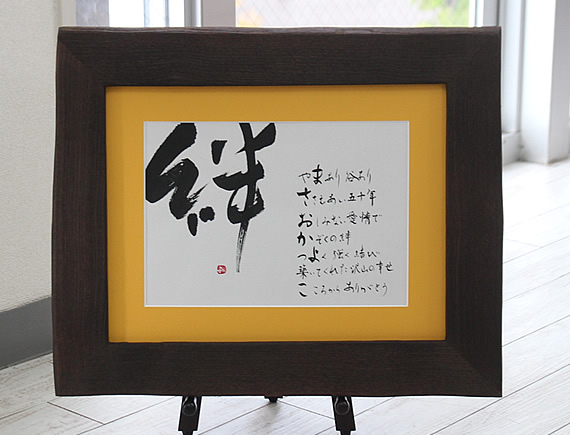 絆
やまあり谷あり
ささえあい五十年
おしみない愛情で
かぞくの絆
つよく強く結び
築いてくれた沢山の幸せ
こころからありがとう